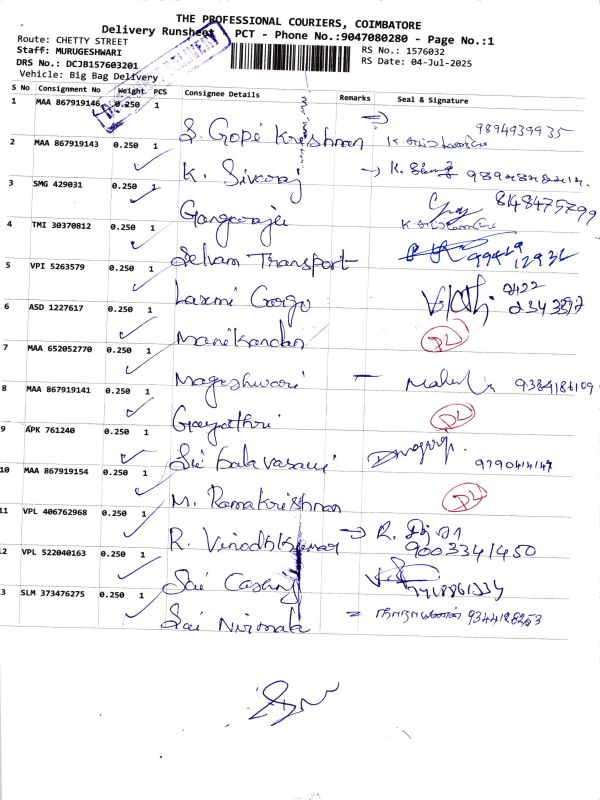 THE PROFESSIONAL COURIERS, COIMBATORE
Delivery Runsheet PCT - Phone No.:9047080280 - Page No.:1
Route: CHETTY STREET RS No.: 1576032
Staff: MURUGESHWARI RS Date: 04-Jul-2025
DRS No.: DCJB157603201
Vehicle: Big Bag Delivery
S No Consignment No Weight PCS Consignee Details Remarks Seal & Signature
1 MAA 867919146 0.250 1
S. Gopi Krishnan 9894939935
2 MAA 867919143 0.250 1
K. Sivaraj
3 SMG 429031 0.250 1
8148475799
Gangaraju
4 TMI 30370812 0.250 1
Selvam Transport
5 VPI 5263579 0.250 1
Laxmi Cargo 2343897
6 ASD 1227617 0.250 1
Manikandan DL
7 MAA 652052770 0.250 1
Mageshwari 9384186109
8 MAA 867919141 0.250 1
Gayathri DL
9 APK 761240 0.250 1
9790414147
10 MAA 867919154 0.250 1
M. Ramakrishnan DL
11 VPL 406762968 0.250 1
R. Vinodhkumar 9003341450
12 VPL 522040163 0.250 1
Sai
13 SLM 373476275 0.250 1
Sai Nirmala 9344128253